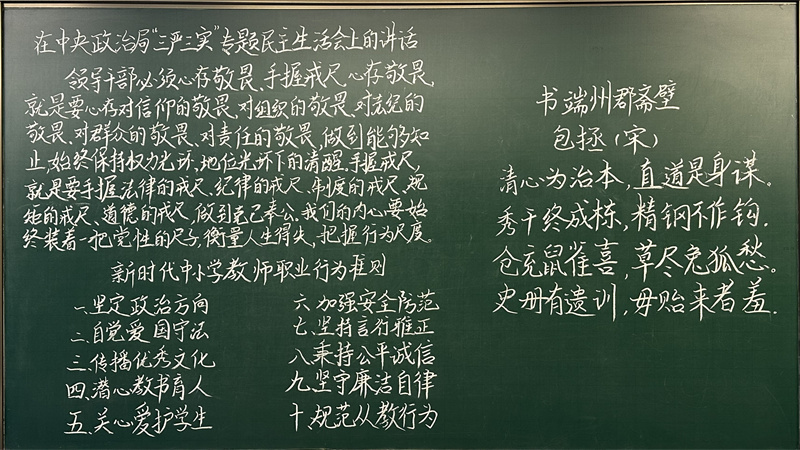 在中央政治局"三严三实"专题民主生活会上的讲话
领导干部必须心存敬畏、手握戒尺,心存敬畏,
就是要心存对信仰的敬畏、对组织的敬畏、对法纪的
敬畏、对群众的敬畏、对责任的敬畏,做到能够知
止,始终保持权力光环,地位光环下的清醒。手握戒尺,
就是要手握法律的戒尺、纪律的戒尺、制度的戒尺、规
矩的戒尺、道德的戒尺,做到克己奉公。我们的内心要始
终装着一把党性的尺子,衡量人生得失,把握行为尺度。
新时代中小学教师职业行为准则
一、坚定政治方向
二、自觉爱国守法
三、传播优秀文化
四、潜心教书育人
五、关心爱护学生
六、加强安全防范
七、坚持言行雅正
八、秉持公平诚信
九、坚守廉洁自律
十、规范从教行为
书端州郡斋壁
包拯(宋)
清心为治本,直道是身谋。
秀干终成栋,精钢不作钩.
仓充鼠雀喜,草尽兔狐愁。
史册有遗训,毋贻来者羞.